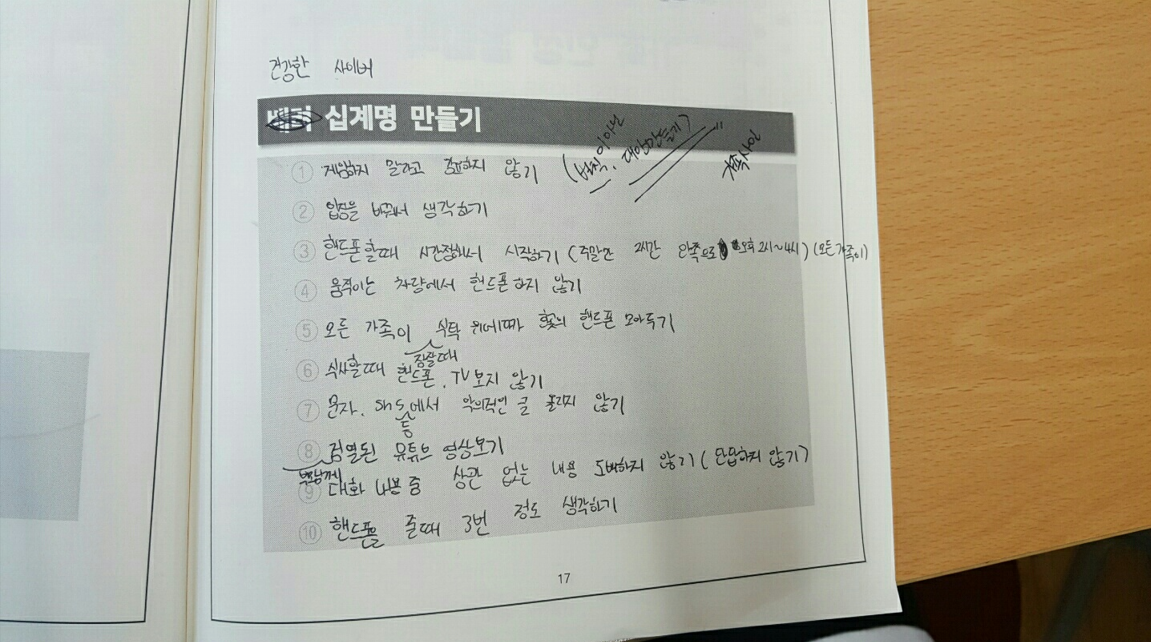 건강한 사이버
십계명 만들기
(벌칙이 아닌, 대안 만들기)
① 게임하지 말라고 강요하지 않기
② 입장을 바꿔서 생각하기
③ 핸드폰 할때 시간정해서 시작하기 (주말만 2시간 안쪽으로 오후 2시~4시) (모든 가족이)
④ 움직이는 차량에서 핸드폰 하지 않기
⑤ 모든 가족이 잠잘때 식탁 위에다가 핸드폰 모아두기
⑥ 식사할때 핸드폰, TV 보지 않기
⑦ 문자, sns 등에서 악의적인 글 올리지 않기
⑧ 부모님께 검열된 유튜브 영상보기
⑨ 대화 내용 중 상관 없는 내용 도배하지 않기 (단답하지 않기)
⑩ 핸드폰을 줄때 3번 정도 생각하기
17